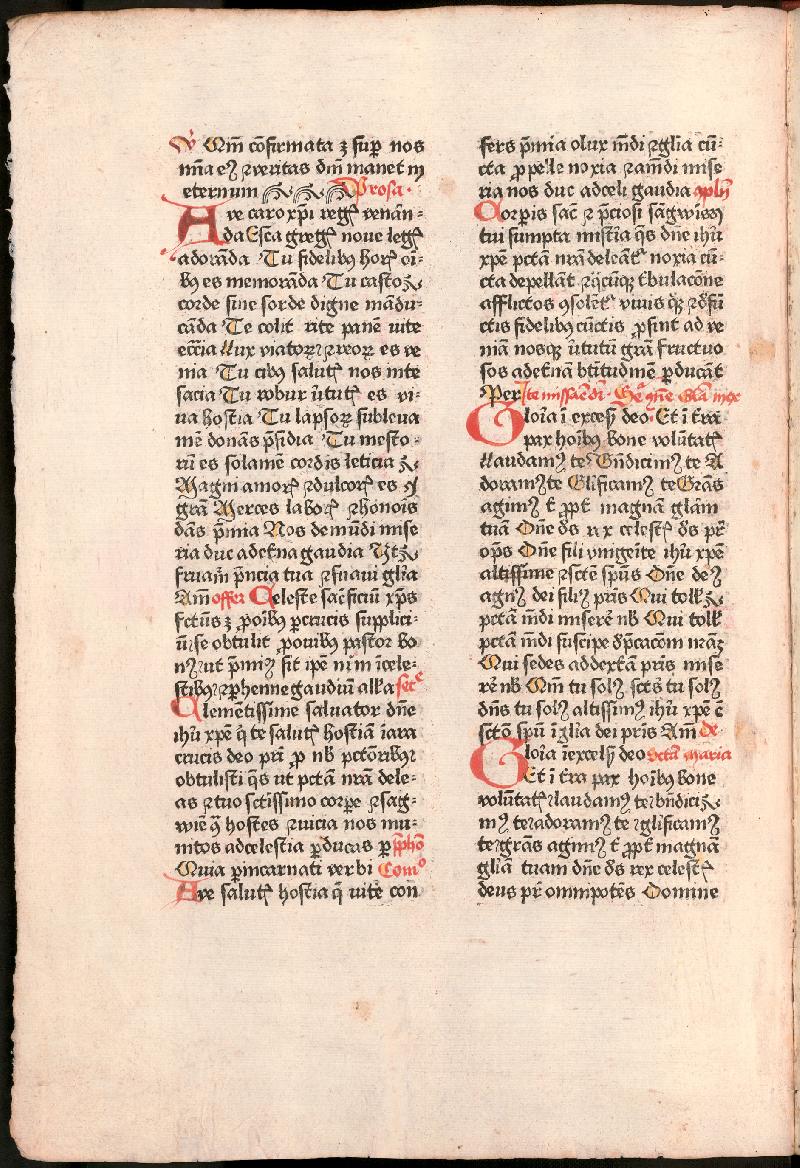 ℣ Qm̄ cōfirmata ē sup nos
mīa eꝰ ⁊ veritas dm̄ manet in
eternum Prosa
Ave caro xp̄i regꝭ venān⸗
da Esca gregꝭ noue legꝭ
adorāda Tu fidelibꝰ horꝭ oī⸗
bꝰ es memorāda Tu casto
corde sine sorde digne mādu⸗
cāda Te colit rite panē vite
ecc̄ia Lux viatoꝝ ⁊ reoꝝ es ve
nia Tu cibꝰ salutꝭ nos inte
sacia Tu robur v̄tutꝭ es vi⸗
ua hostia Tu lapsoꝝ subleua
mē donās p̄sidia Tu mesto⸗
rū es solamē cordis leticia
Magni amorꝭ ⁊ dulcorꝭ es
grām Merces laborꝭ ⁊ honoris
dās p̄mia Nos de mūdi mise
ria duc ad et̄na gaudia Vt
fruam̄ p̄ncia tua ⁊ suaui gl̄ia
Am̄ offer Celeste sac̄ficiū xp̄s
fctūs ꝓ oībꝰ ꝑ crucis supplici⸗
ū se obtulit ꝓ ouibꝰ pastor bo
nꝰ ut p̄miꝰ sit ip̄e nim ī cele⸗
stibꝰ ⁊ ꝑhenne gaudiū all̄a secᵉ
Clementissime saluator dn̄e
ih̄u xp̄e q̄ te salutꝭ hostiā ī ara
crucis deo pr̄i ꝓ nb̄ pctōribꝰ
obtulisti q̄s ut pctā nr̄ā dele⸗
as ⁊ tuo sctissimo corpe ⁊ sag⸗
wiē q̄ hostes ⁊ vicia nos mu⸗
nitos ad celestia ꝑducas ꝑ p̄pho
Quia ꝑ incarnati verbi Comᵒ
Ave salutꝭ hostia q̄ vite con
fers p̄mia o lux mūdi ⁊ gl̄ia cū⸗
cta ꝓpelle noxia ⁊ a mūdi mise
ria nos duc ad celi gaudia ꝯplm̄
Corpis sac̄ ⁊ p̄ciosi sāgwinis
tui sumpta mistia q̄s dn̄e ih̄u
xp̄e pctā nr̄ā deleāt noxia cū⸗
cta depellāt ⁊ q̄cūqꝫ t̄bulacōne
afflictos ꝯsolēt vivis qꝫ ⁊ defū
ctis fidelibꝰ cūctis ꝓsint ad ve
niā nosqꝫ v̄tutū grām fructuo
sos ad et̄nā btītudinē ꝑducāt
Per Ite missa
Gloria ī excelꝭ deo Et ī t̄ra
pax hoībꝰ bone volūtatꝭ
Laudamꝰ te Bn̄dicimꝰ te A
doramꝰ te Gl̄ificamꝰ te Grās
agimꝰ t̄ ꝓpt magnā glām
tuā Dn̄e ds̄ rex celestꝭ ds̄ pr̄
op̄s Dn̄e fili vnigeīte ih̄u xp̄e
altissime ⁊ sctē sp̄us Dn̄e deꝰ
agnꝰ dei filiꝰ pr̄is Qui tollꝭ
pctā mūdi miserē nb̄ Qui tollꝭ
pctā mūdi suscipe dp̄cacōm nr̄āꝫ
Qui sedes ad dextā pr̄is mise
rē nb̄ Qm̄ tu solꝰ sctꝰ tu solꝰ
dn̄s tu solꝰ altissimꝰ ih̄u xp̄e c̄
sctō sp̄u ī gl̄ia dei pr̄is Am̄ de
Gloria ī excelꝭ deo sctā maria
Et ī t̄ra pax hoībꝰ bone
volūtatꝭ laudamꝰ te bn̄dici
mꝰ te adoramꝰ te ⁊ gl̄ificamꝰ
te grās agimꝰ t̄ ꝓpt magnā
gl̄iā tuam dn̄e ds̄ rex celestꝭ
deus pr̄ omnipotēs Domine